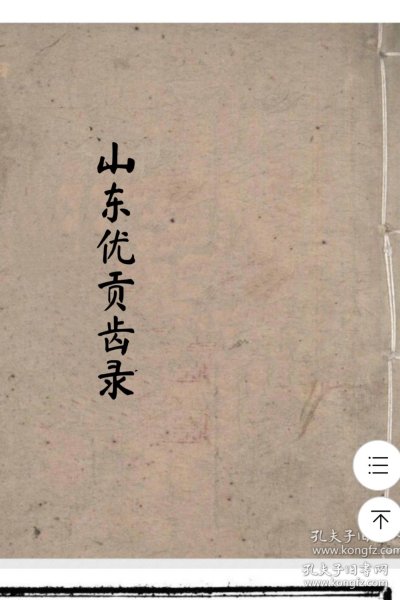 山东优贡齿录
孔夫子旧书网
www.kongfz.com
孔夫子旧书网
www.kongfz.com